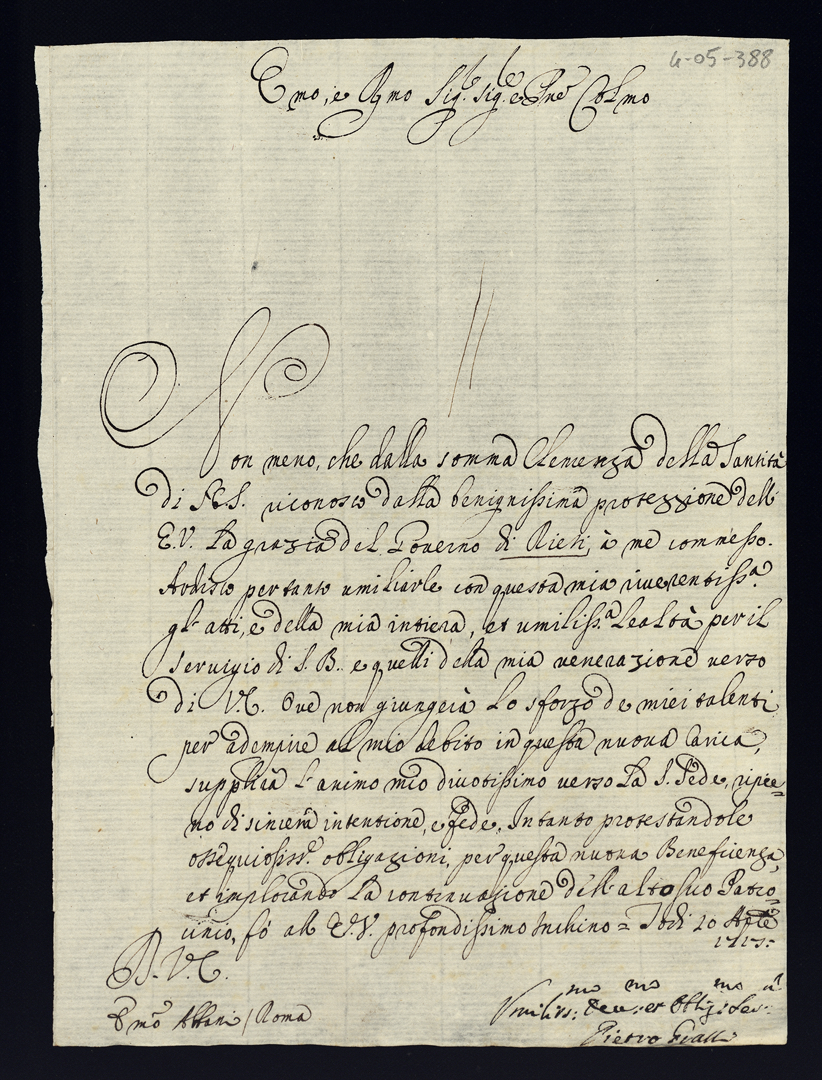 4-05-388
Emo, e Rmo Sig.r Sig.re e Pne Colmo
Non meno, che dalla somma Clemenza della Santità
di N.S. riconosco dalla benignissima protezzione dell'
E.V. la grazia del Governo di Rieti, à me commesso.
Ardisco per tanto umiliarle con questa mia riverentiss.a
gl'atti, e della mia intiera, et umiliss.a lealtà per il
servigio di S.B. e quelli della mia venerazione verso
di V.E. Ove non giungerà lo sforzo de miei talenti
per adempire al mio debito in questa nuova Carica,
supplirà l'animo mio divotissimo verso la S. Sede, ripie=
no di sincera intentione, e fede. Intanto protestandole
ossequiosiss.e obligazioni, per questa nuova Beneficenza,
et implorando la continuazione dell'alto suo Patro=
cinio, fò all'E.V. profondissimo Inchino = Todi 20 Aple
1715:
D.V.E.
Emo Albani / Roma
Umilis:mo Deu:mo et Oblig:mo Ser:
Pietro